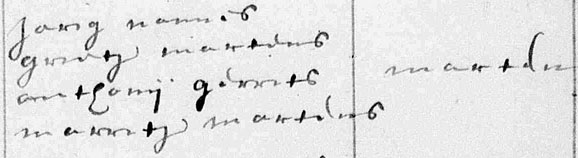 jorig nannes
grietz martens
anthonij gerrits
marritz martens
marten